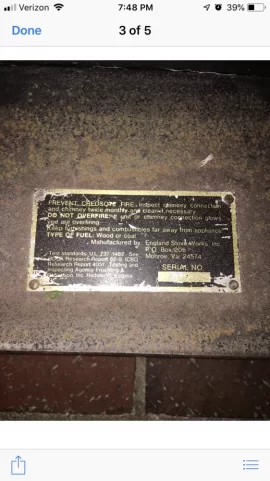 Verizon 7:48 PM 39%
Done 3 of 5
PREVENT CREOSOTE FIRE. Inspect chimney connection
and chimney twice monthly and clean if necessary.
DO NOT OVERFIRE. If unit or chimney connection glows,
you are overfiring.
Keep furnishings and combustibles far away from appliance
TYPE OF FUEL: Wood or coal
Manufactured by England Stove Works, Inc.
P.O. Box 206
Monroe, Va. 24574
Test standards: UL 737 1482 See
Research Report
Research Report Testing and
Inspecting Agency
SERIAL NO